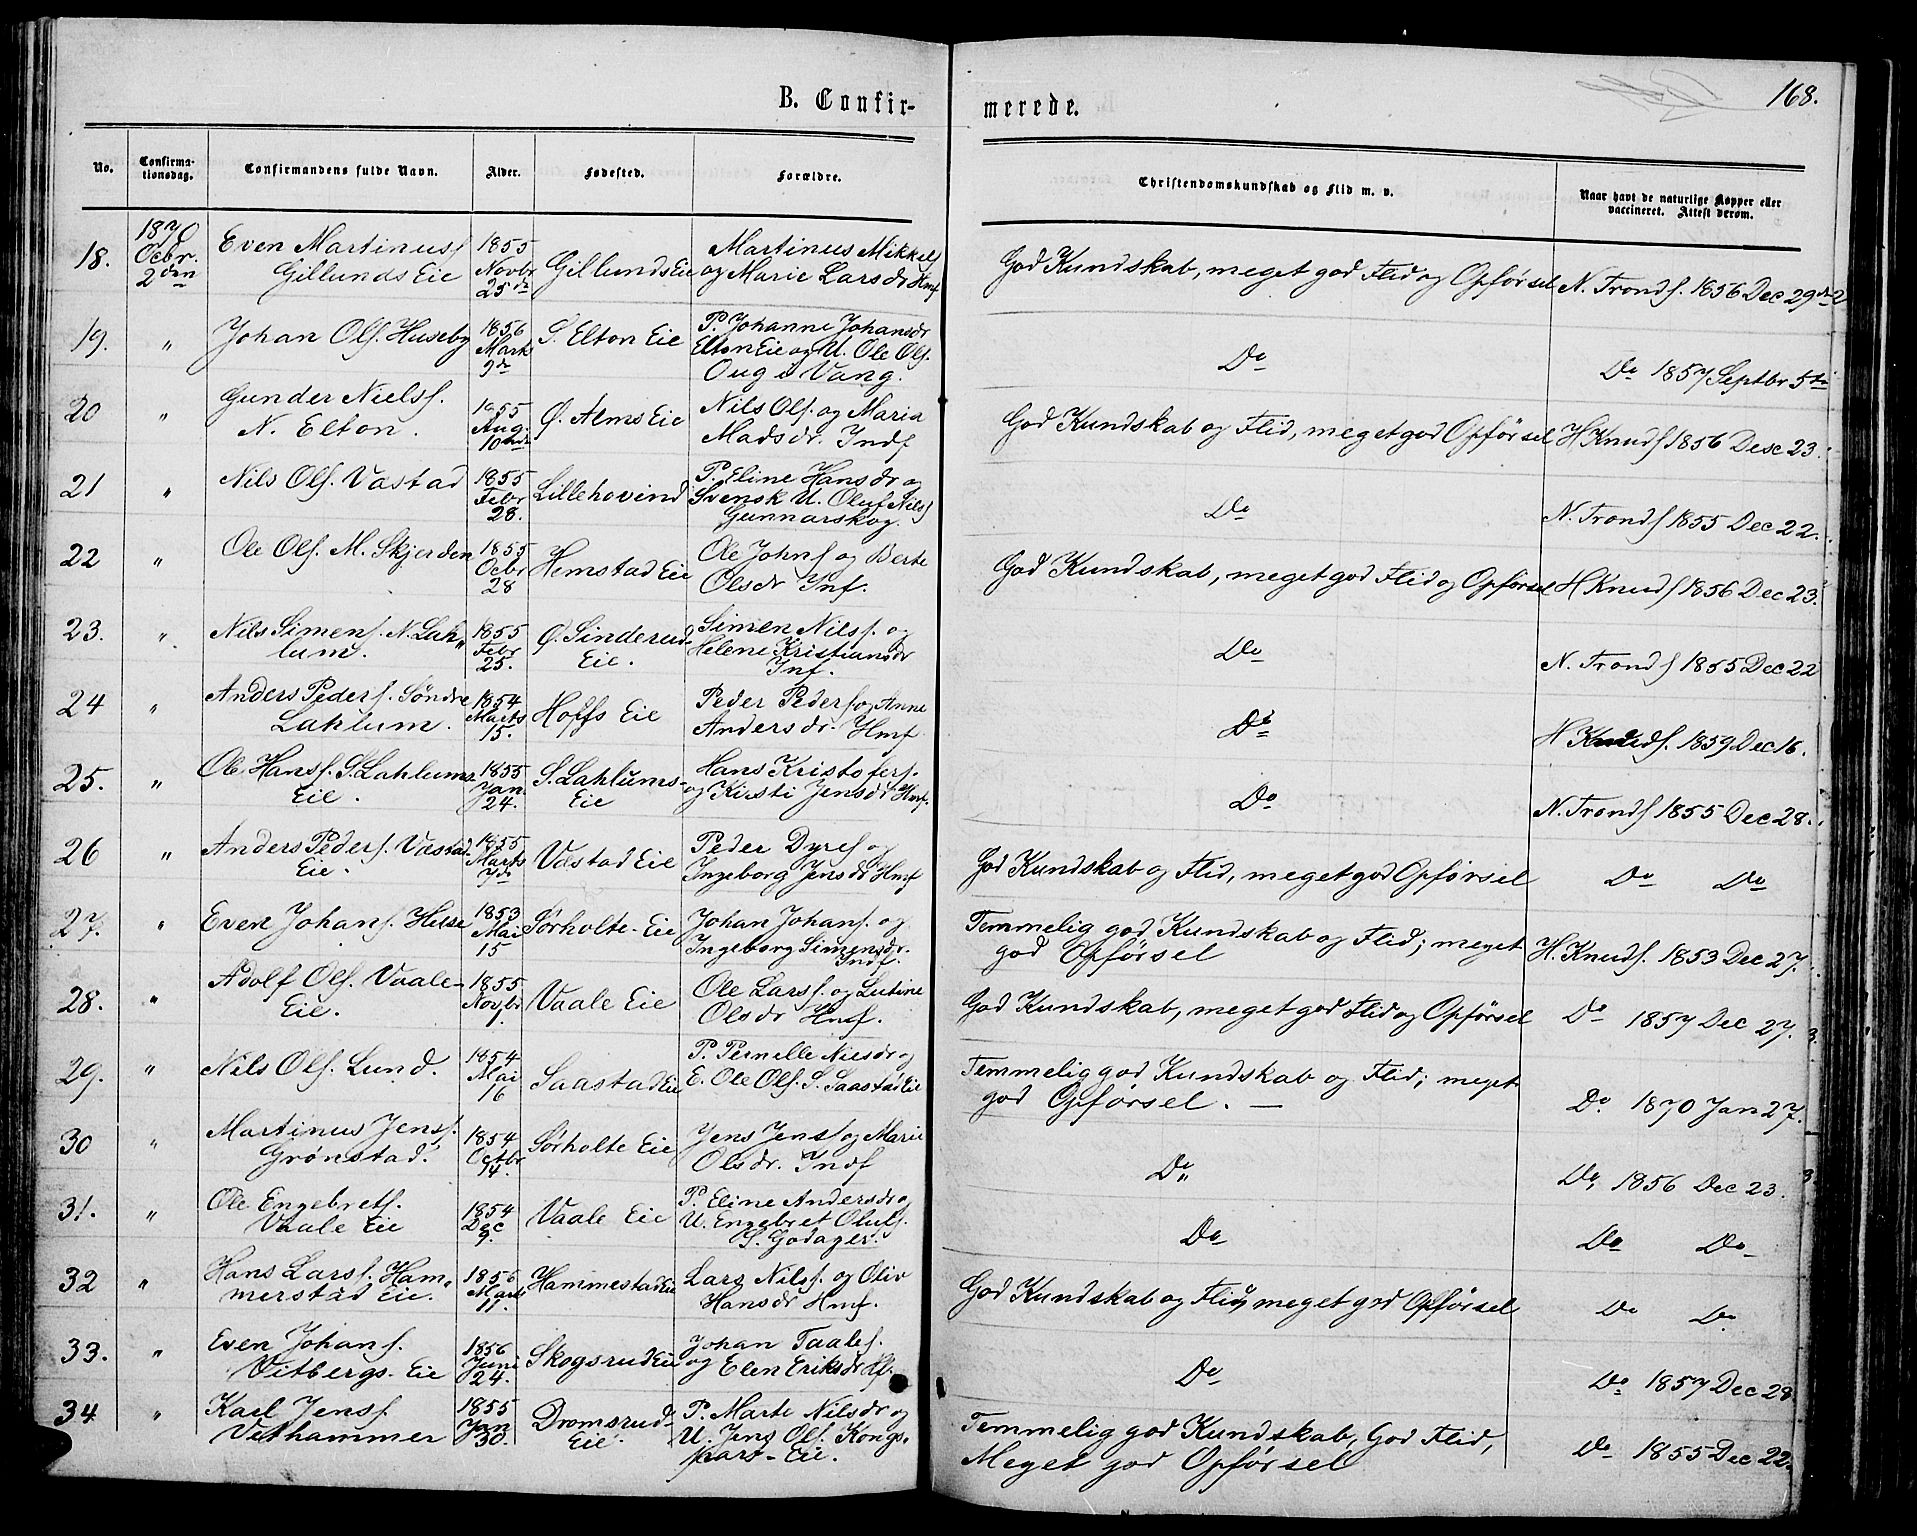 168.
B. Confir-
merede.
No.
Confirma-
tionsdag.
Confirmandens fulde Navn.
Alder.
Fødested.
Forældre.
Christendomskundskab og Flid m. v.
Naar havt de naturlige Kopper eller
vaccineret. Attest derom.
18.
1870
Ocbr.
2den
Even Martinuss
Gillunds Eie
1855
Novbr
25de
Gillunds Eie
Martinus Mikkels
og Marie Larsdr Hmf
God Kundskab, meget god Flid og Opførsel
N. Tronds. 1856 Dec 29
19.
"
Johan Ols. Huseby
1856
Marts
9de
S. Elton Eie
P. Johanne Johansdr
Elton Eie og U. Ole Ols.
Oug i Vang.
Do
Do 1857 Septbr 5te
20
"
Gunder Nielss.
N. Elton.
1855
Aug.
10nde
Ø. Alms Eie
Nils Ols. og Maria
Madsdr. Indf
God Kundskab og Flid, meget god Opførsel
H Knuds 1856 Desc 23.
21
"
Nils Ols. Vastad
1855
Febr
28.
Lillehovind
P. Eline Hansdr og
Svensk U. Oluf Nils
Gunnarskog.
Do
N. Tronds 1855 Dec 22.
22
"
Ole Ols. M. Skjerden
1855
Ocbr
28
Hemstad Eie
Ole Johns og Berte
Olsdr Inf.
God Kundskab, meget god Flid og Opførsel
H Knuds 1856 Dec 23.
23.
"
Nils Simens. N. Lah"
lum.
1855
Febr
25.
Ø. Sinderud
Eie.
Simen Nilss. og
Helene Kristiansdr
Inf.
Do
N. Tronds 1855 Dec 22
24
"
Anders Peders. Søndre
Lahlum.
1854
Marts
15.
Hoffs Eie
Peder Peders og Anne
Andersdr. Hmf
Do
H Knuds. 1859 Dec 16.
25.
"
Ole Hanss. S. Lahlums
Eie.
1855
Jan.
24.
S. Lahlums-
Eie
Hans Kristofers.
og Kirsti Jensdr Hmf.
Do
N. Tronds 1855 Dec 28.
26
"
Anders Peders. Vastad
Eie.
1855
Marts
7de
Vastad Eie
Peder Dyres og
Ingeborg Jensdr Hmf
God Kundskab og Flid, meget god Opførsel
Do Do
27.
"
Even Johans. Helse
1853
Mai
15
Sørholte-Eie
Johan Johans. og
Ingeborg Simensdr.
Indf.
Temmelig god Kundskab og Flid; meget
god Opførsel
H. Knuds. 1853 Dec 27.
28.
"
Adolf Ols. Vaale-
Eie.
1855
Novbr
1.
Vaale Eie
Ole Larss. og Lutine
Olsdr Hmf.
God Kundskab, meget god Flid og Opførsel
Do 1857 Dec 27.
29.
"
Nils Ols. Lund.
1854
Mai
16
Saastad Eie
P. Pernelle Nilsdr og
E. Ole Ols. S. Saastad Eie
Temmelig god Kundskab og Flid; meget
god Opførsel. —
Do. 1870 Jan 27.
30
"
Martinus Jenss.
Grønstad.
1854
Octbr
14.
Sørholte Eie
Jens Jens og Marie
Olsdr. Indf
Do
Do, 1856 Dec 23.
31.
"
Ole Engebrets.
Vaale Eie
1854
Dec
9.
Vaale Eie
P. Eline Andersdr og
U. Engebret Olufs.
S. Godager.
Do
Do Do
32
"
Hans Larss. Ham"
merstad Eie.
1856
Marts
11.
Hammestad Eie
Lars Nilss. og Oliv
Hansdr Hmf.
God Kundskab og Flid, meget god Opførsel
Do Do
33.
"
Even Johans.
Vitbergs-Eie
1856
Juni
24.
Skogsrud Eie
Johan Taales.
og Elen Eriksdr Hf.
Do
Do 1857 Dec 28
34
"
Karl Jenss.
Vethammer
1855
Jan
30.
Dromsrud-
Eie.
P. Marte Nilsdr og
U. Jens Ols. Kongs-
pars-Eie.
Temmelig god Kundskab, God Flid,
Meget god Opførsel
Do 1855 Dec 22.